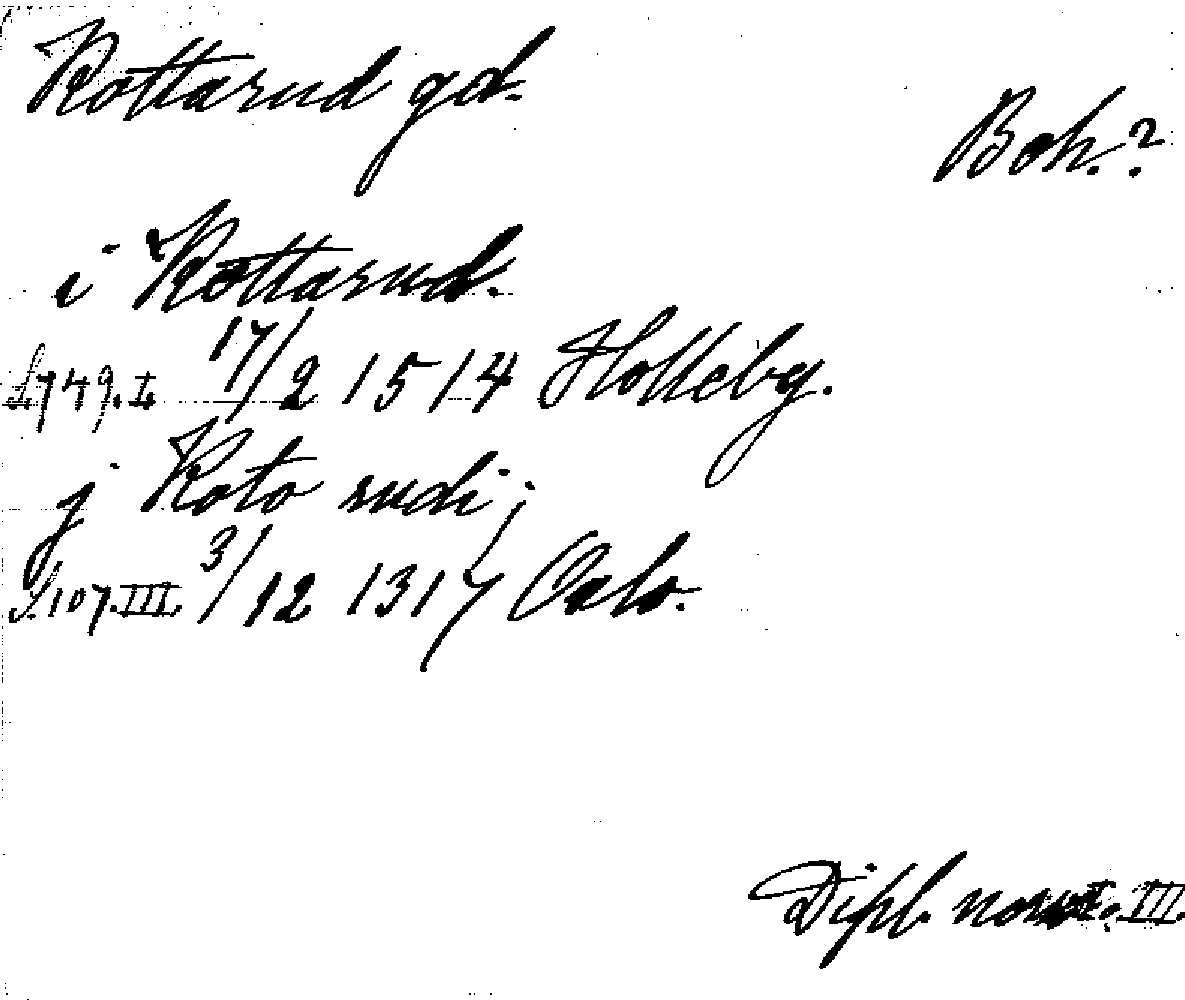 Rottarud gd.
Boh.?
i Rottarud.
S. 749. I. 17/2 1514 Holleby.
j Roto rudi;
S. 107. III. 3/12 1317 Oslo.
Dipl. norv. I. III.